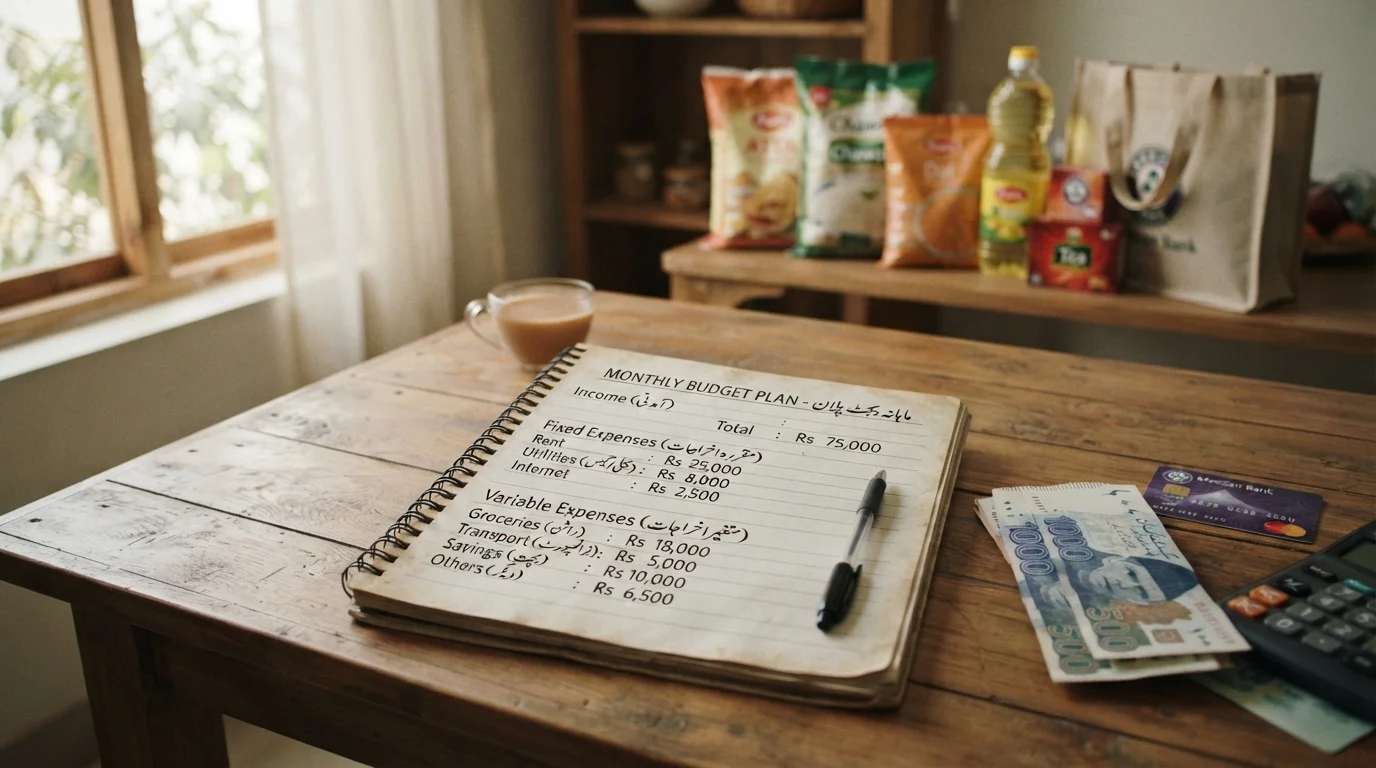 MONTHLY BUDGET PLAN - ماہانہ بجٹ پلان
Income (آمدنی)
Total : Rs 75,000
Fixed Expenses (مقررہ اخراجات)
Rent : Rs 25,000
Utilities : Rs 8,000
Internet : Rs 2,500
Variable Expenses (متغیر اخراجات)
Groceries (راشن) : Rs 18,000
Transport (ٹرانسپورٹ): Rs 5,000
Savings (بچت) : Rs 10,000
Others : Rs 6,500
Tea
Bank
Bank